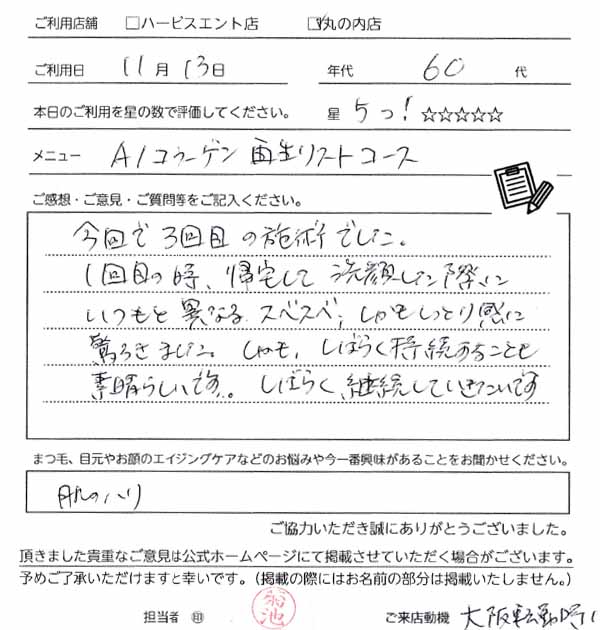 ご利用店舗 □ハービスエント店 ☑丸の内店
ご利用日 11月13日 年代 60代
本日のご利用を星の数で評価してください。 星 5つ! ☆☆☆☆☆
メニュー AIコラーゲン再生リフトコース
ご感想・ご意見・ご質問等をご記入ください。
今回で3回目の施術でした。
1回目の時、帰宅して洗顔した際に
いつもと異なるスベスベ、しかもしっとり感に
驚ろきました。しかも、しばらく持続することも
素晴らしいです。しばらく継続していきたいです
まつ毛、目元やお顔のエイジングケアなどのお悩みや今一番興味があることをお聞かせください。
肌のハリ
ご協力いただき誠にありがとうございました。
頂きました貴重なご意見は公式ホームページにて掲載させていただく場合がございます。
予めご了承いただけますと幸いです。(掲載の際にはお名前の部分は掲載いたしません。)
担当者 ㊞ 菊池 ご来店動機 大阪転勤時